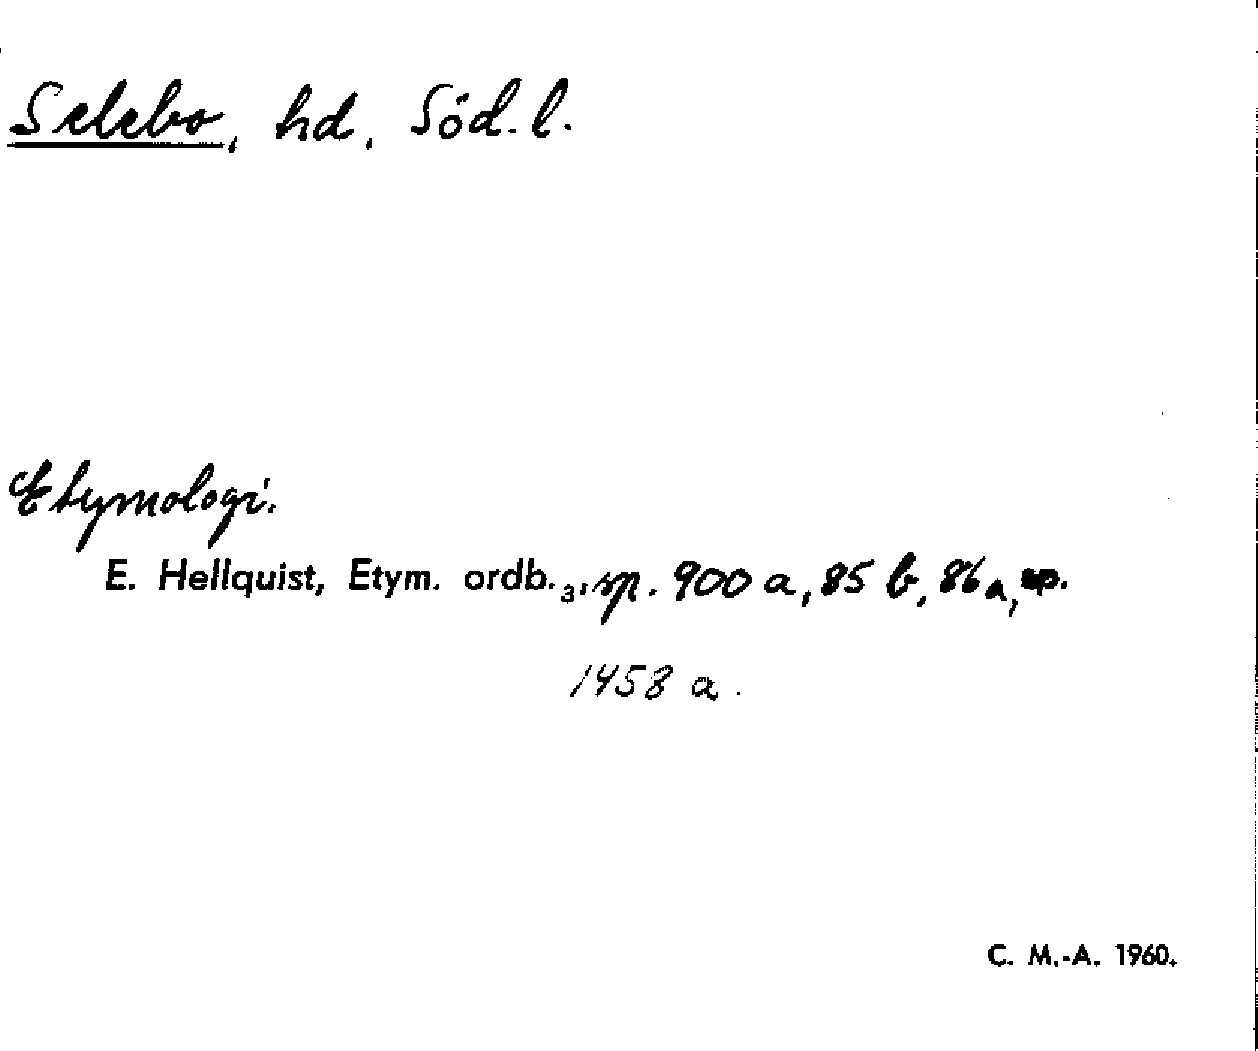 Selebo, hd, Söd. l.
Etymologi.
E. Hellquist, Etym. ordb.₃, sp. 900 a, 85 b, 86 a, sp.
1458 a.
C. M.-A. 1960.